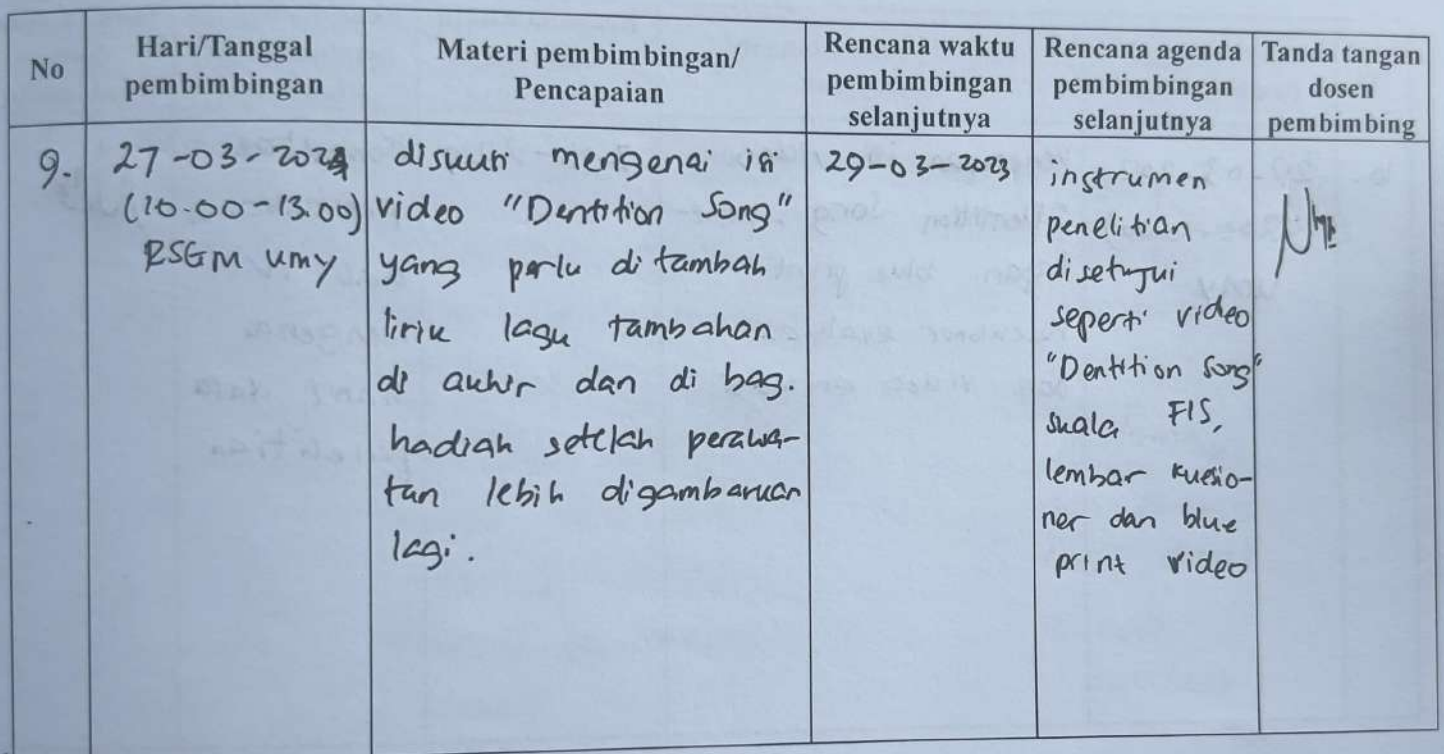 No
Hari/Tanggal
pembimbingan
Materi pembimbingan/
Pencapaian
Rencana waktu
pembimbingan
selanjutnya
Rencana agenda
pembimbingan
selanjutnya
Tanda tangan
dosen
pembimbing
9.
27-03-2023
(10.00-13.00)
RSGM UMY
diskusi mengenai isi
video "Dentition Song"
yang perlu di tambah
lirik lagu tambahan
di akhir dan di bag.
hadiah setelah perawa-
tan lebih digambarkan
lagi.
29-03-2023
instrumen
penelitian
disetujui
seperti video
"Dentition Song"
skala FIS,
lembar kuesio-
ner dan blue
print video